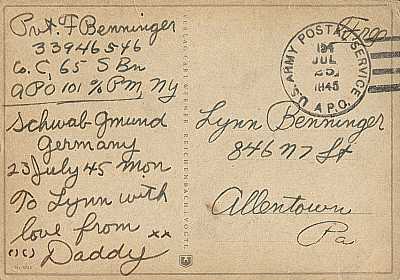 Pvt. F Benninger
33946546
Co. C, 65 S Bn
APO 101 % PM, NY
Schwab-Gmund
Germany
23 July 45 Mon
To Lynn with
love from xx
Daddy
VERLAG CARL WERNER, REICHENBACH I. VOGTL.
Free
U.S. ARMY POSTAL SERVICE
JUL
1945
A.P.O.
Lynn Benninger
846 N 7 St
Allentown
Pa